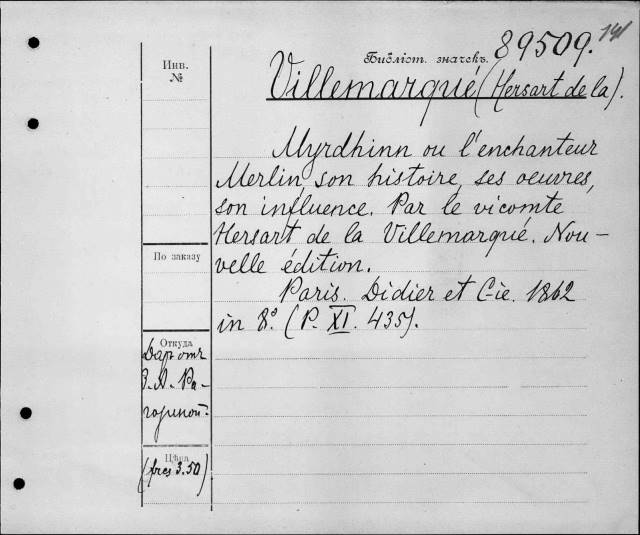 Библіот. значекъ. 89509.
Инв.
№
Villemarqué (Hersart de la).
Myrdhinn ou l'enchanteur
Merlin, son histoire, ses oeuvres,
son influence. Par le vicomte
Hersart de la Villemarqué. Nou-
velle édition.
Paris. Didier et C-ie. 1862
in 8º. (P. XI. 435).
По заказу
Откуда
Даръ отъ
Цѣна
(frcs 3.50)